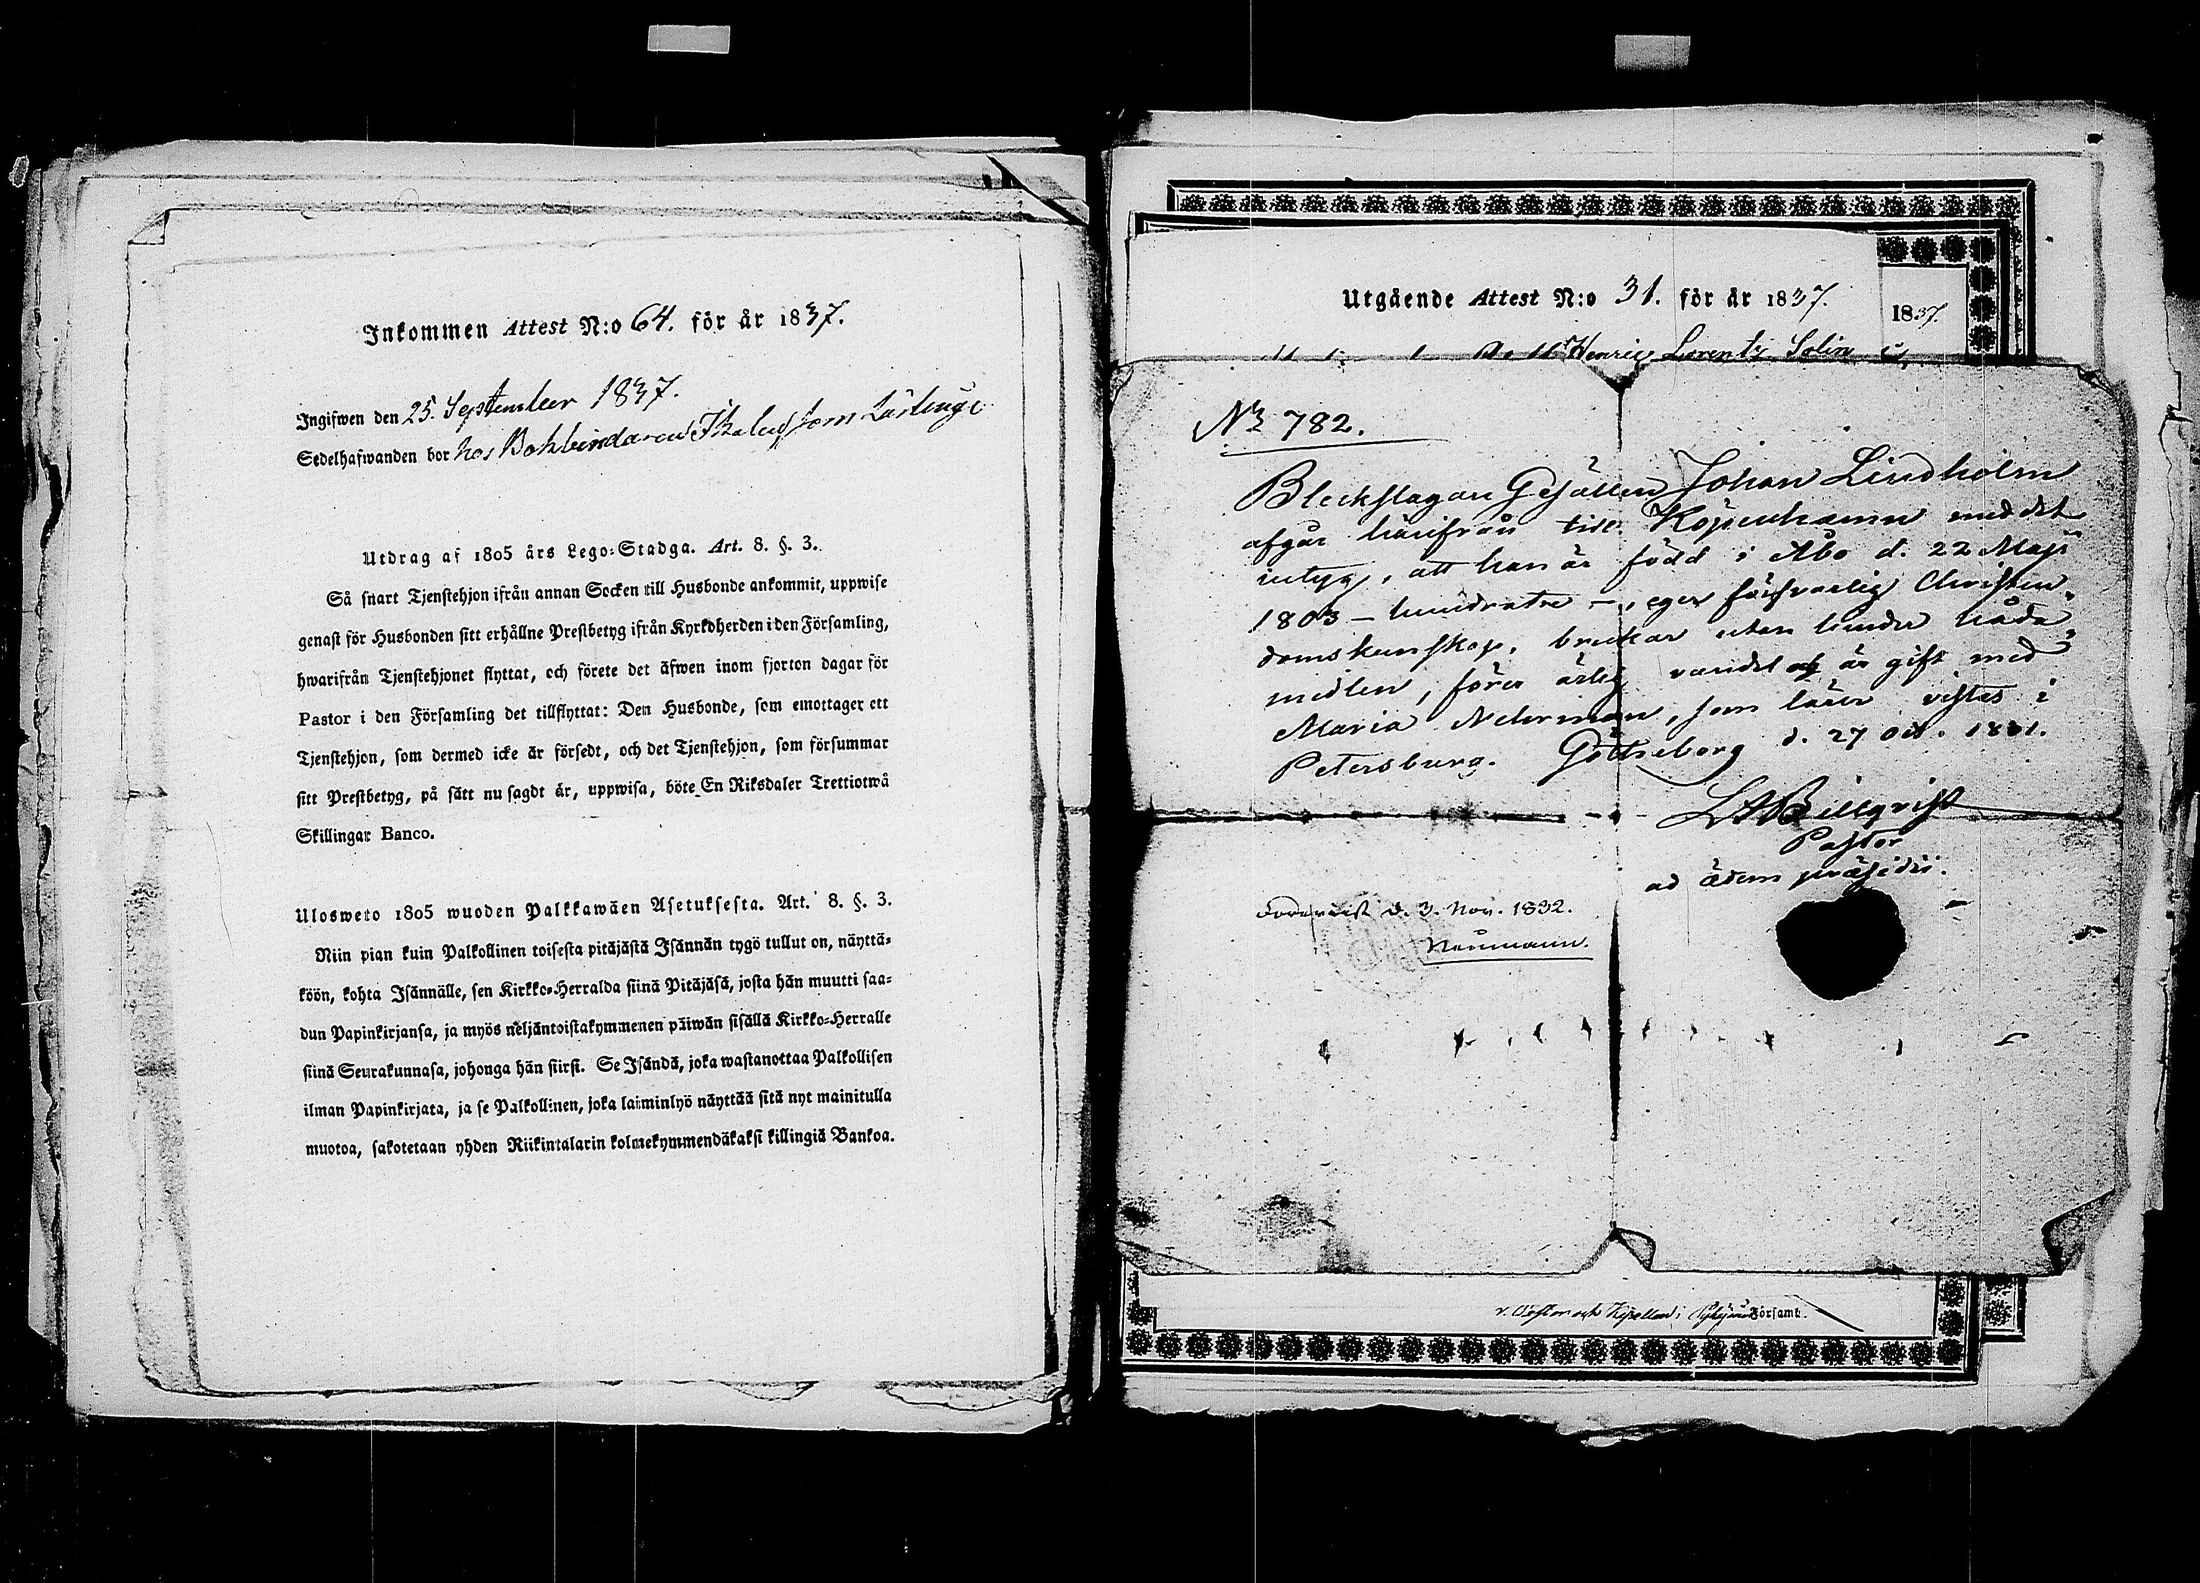 Inkommen Attest N:o 64. för år 1837.
Ingifwen den 25. September 1837.
Sedelhafwanden bor hos Bokbindaren som Lärlinge
Utdrag af 1805 års Lego-Stadga. Art. 8. §. 3.
Så snart Tjenstehjon ifrån annan Socken till Husbonde ankommit, uppwise
genast för Husbonden sitt erhållne Prestbetyg ifrån Kyrkoherden i den Församling,
hwarifrån Tjenstehjonet flyttat, och förete det äfwen inom fjorton dagar för
Pastor i den Församling det tillflyttat: Den Husbonde, som emottager ett
Tjenstehjon, som dermed icke är försedt, och det Tjenstehjon, som försummar
sitt Prestbetyg, på sätt nu sagdt är, uppwisa, böte En Riksdaler Trettiotwå
Skillingar Banco.
Ulosweto 1805 wuoden Palkkawäen Asetuksesta. Art. 8. §. 3.
Niin pian kuin Palkollinen toisesta pitäjästä Isännän tygö tullut on, näyttä-
köön, kohta Isännälle, sen Kirkko-Herralda siinä Pitäjäsä, josta hän muutti saa-
dun Papinkirjansa, ja myös neljäntoistakymmenen päiwän sisällä Kirkko-Herralle
siinä Seurakunnasa, johonga hän siirsi. Se Isändä, joka wastanottaa Palkollisen
ilman Papinkirjata, ja se Palkollinen, joka laiminlyö näyttää sitä nyt mainitulla
muotoa, sakotetaan yhden Riikintalarin kolmekymmendäkaksi killingiä Bankoa.
Utgående Attest N:o 31. för år 1837.
1837.
Henric Lorentz Solin
No 782.
Bleckslagare Gesällen Johan Lindholm
afgår härifrån till Köpenhamn med det
intyg, att han är född i Åbo d. 22 Maji
1803 – hundratre –, eger försvarlig Christen-
domskunskap, brukar utan hinder nåda-
medlen, förer ärlig vandel och är gift med
Maria Nehrman, som lärer vistas i
Petersburg. Götheborg d. 27 Oct. 1831.
Billqvist
Pastor
ad ædem præsidii.
d. 3. Nov. 1832.
Neumann.
v. Pastor och Kapellan i Församl.